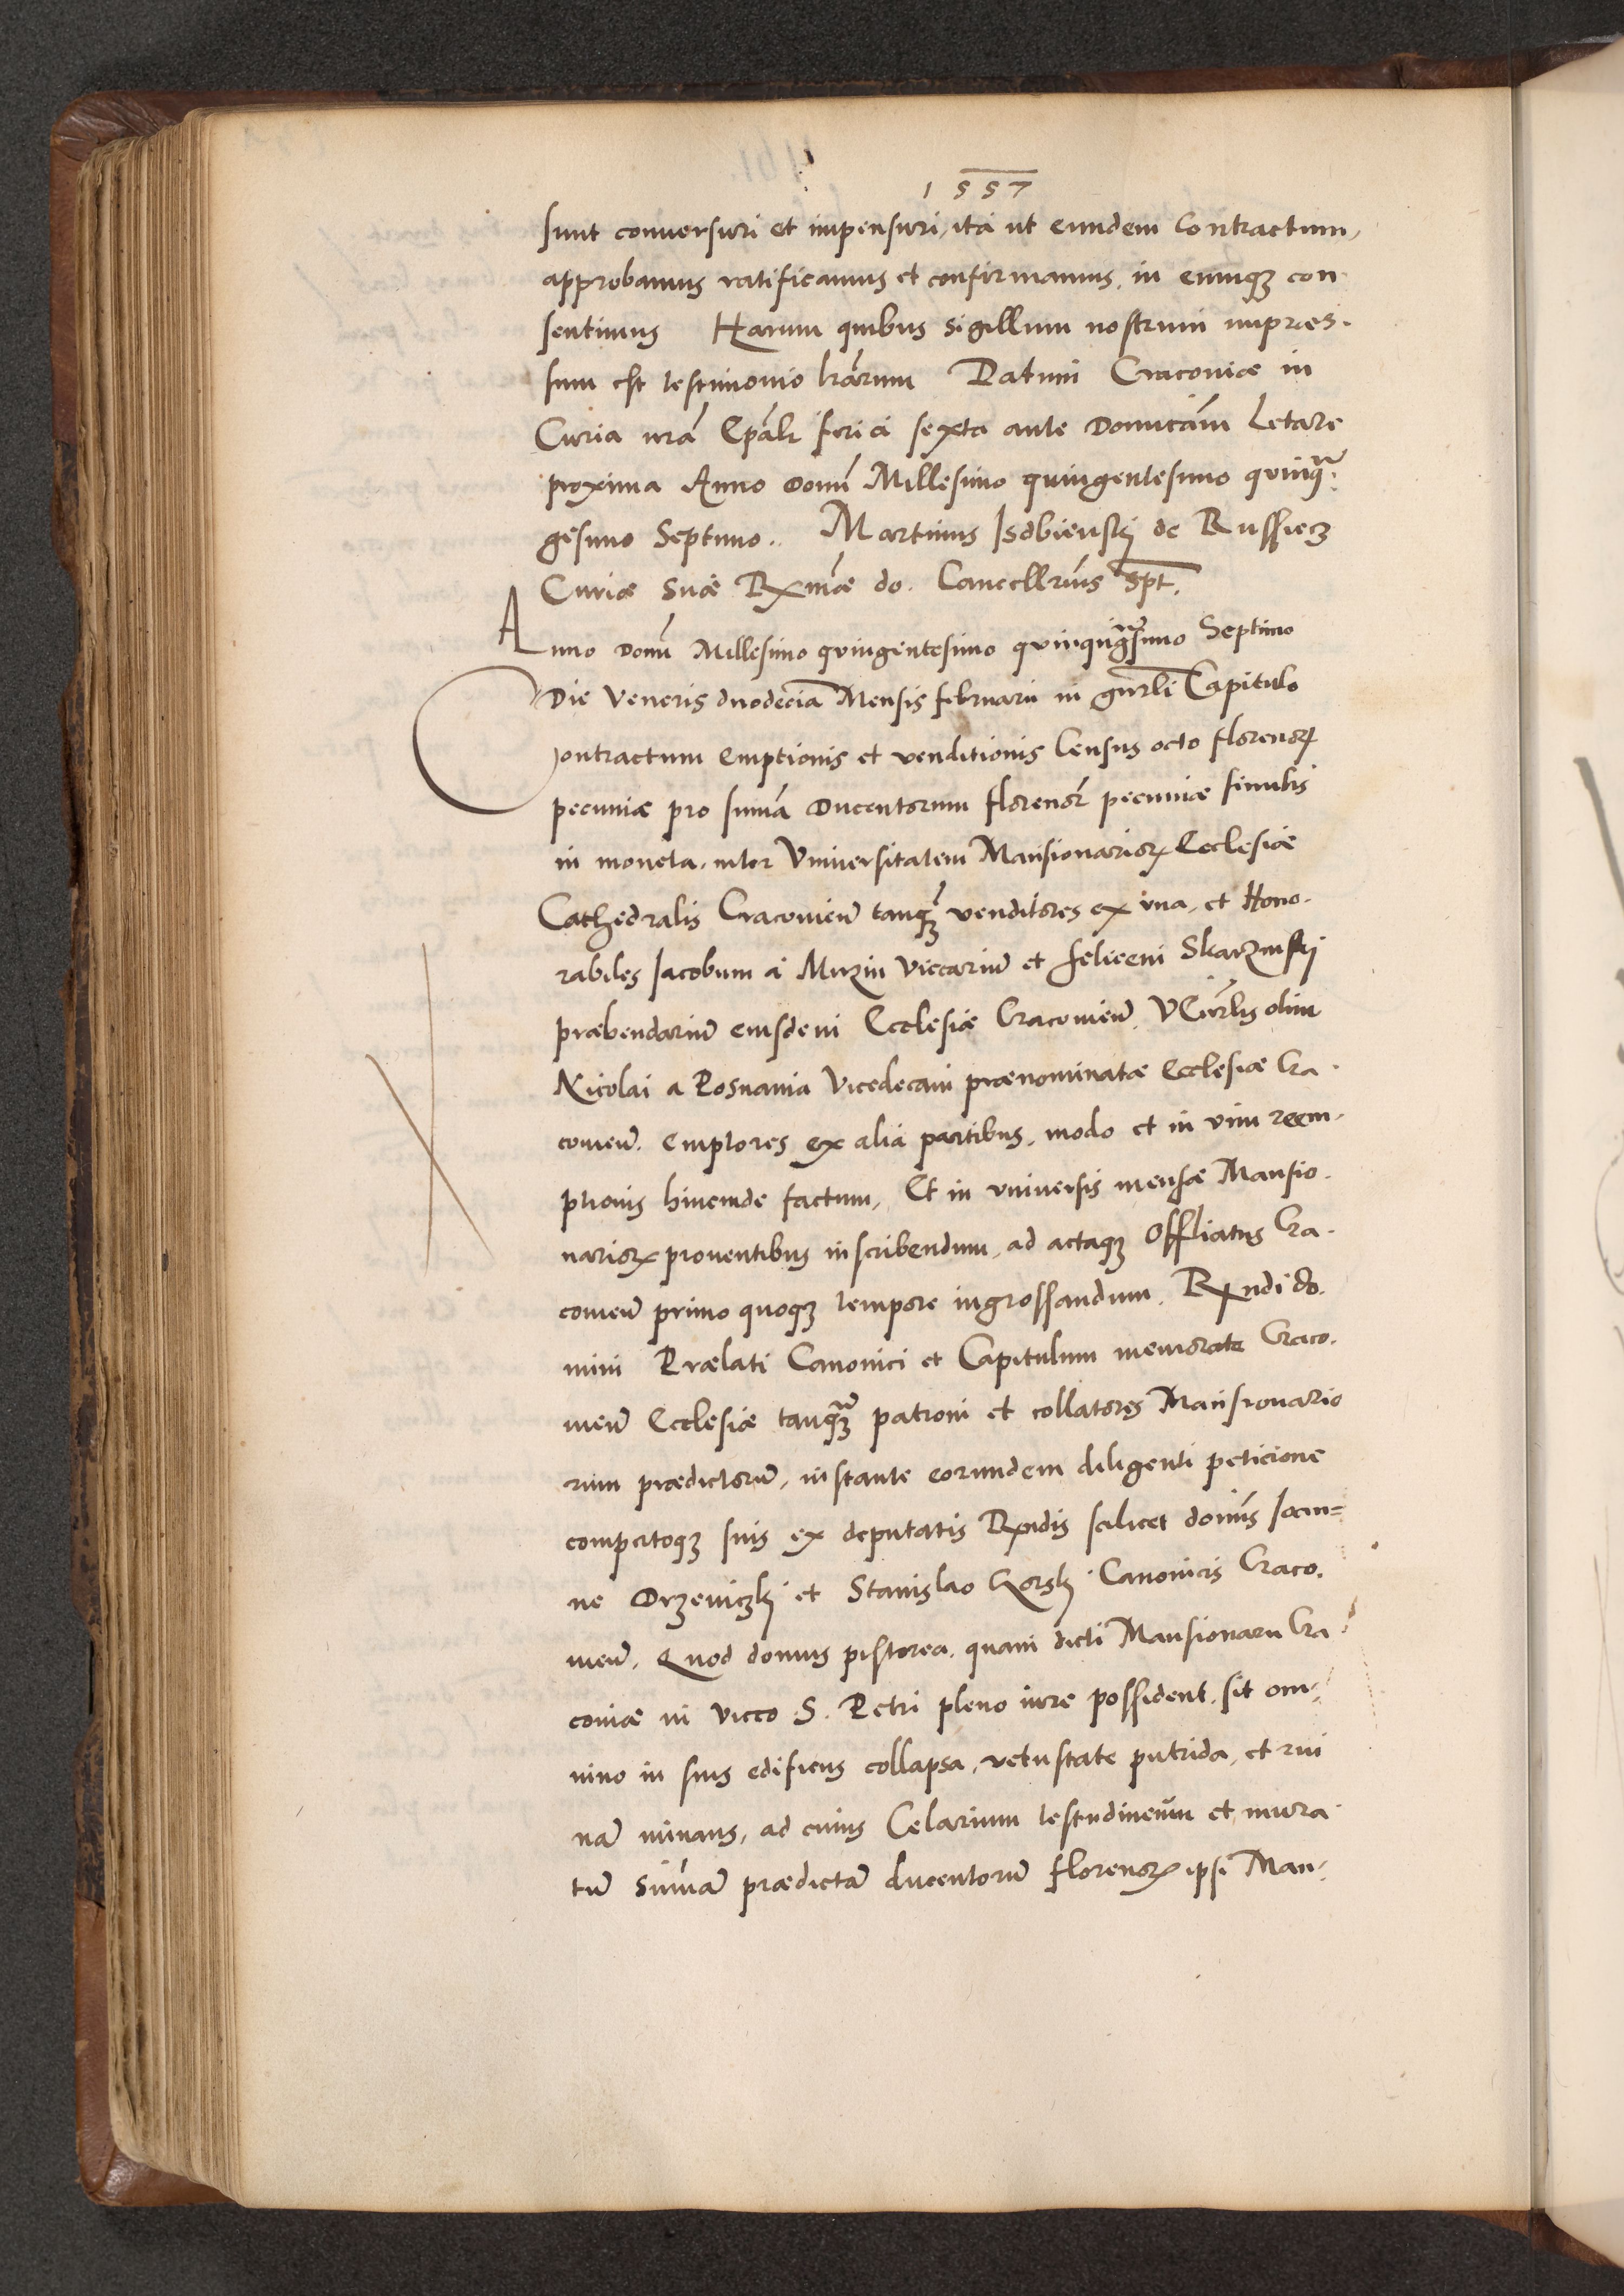 1557
sunt conuersuri et impensuri, ita ut eundem contractum,
approbamus ratificamus et confirmamus, in eumqz con
sentimus Harum quibus sigillum nostrum impræs.
sum est testimonio lrarum Datum Cracouiæ in
Curia nra Epali feria sexta ante Domicam Letare
proxima Anno Domi Millesimo quingentesimo quinqua
gesimo Septimo. Martinus Isdbienskj de Russiecz
Curiæ Suæ Rxmæ do. Cancellrius Spt.
Anno Domi Millesimo quingentesimo quinquagesimo Septimo
Die Veneris duodecima Mensis februarii in gnrli Capitulo
Contractum emptionis et venditionis Census octo florenor
pecuniæ pro suma Ducentorum florenor pecuniæ similis
in moneta, inter Vniuersitatem Mansionarior Ecclesiæ
Cathedralis Cracouien tanqz venditores ex vna, et Hono.
rabiles Iacobum à Muzin Viccarium et felicem Skarzinskj
præbendarium eiusdem Ecclesiæ Cracouien, olim
Nicolai a Posnania Vicedecani prænominatæ Ecclesiæ Cra.
couien. emptores ex alia partibus, modo et in vim reem.
ptionis hincinde factum, Et in vniuersis mensæ Mansio.
narior prouentibus inscribendum, ad actaqz Offliatus Cra.
couien primo quoqz tempore ingrossandum. Rxndi do.
mini Prælati Canonici et Capitulum memorate Craco.
uien Ecclesiæ tanquam patroni et collatores Mansionario
rum prædictorum, instante eorundem diligenti peticione
compertoqz suis ex deputatis Rxndis scilicet dominis Ioan=
ne Drzeuiczkj et Stanislao Gorskj Canonicis Craco.
uien. Quod domus pistorea, quam dicti Mansionarii Cra
couiæ in vicco S. Petri pleno iure possident, sit om
nino in suis edificiis collapsa, vetustate putrida, et rui
nam minans, ad cuius Celarium testudineum et mura
tum Sumam prædictam ducentorum florenor ipsi Man